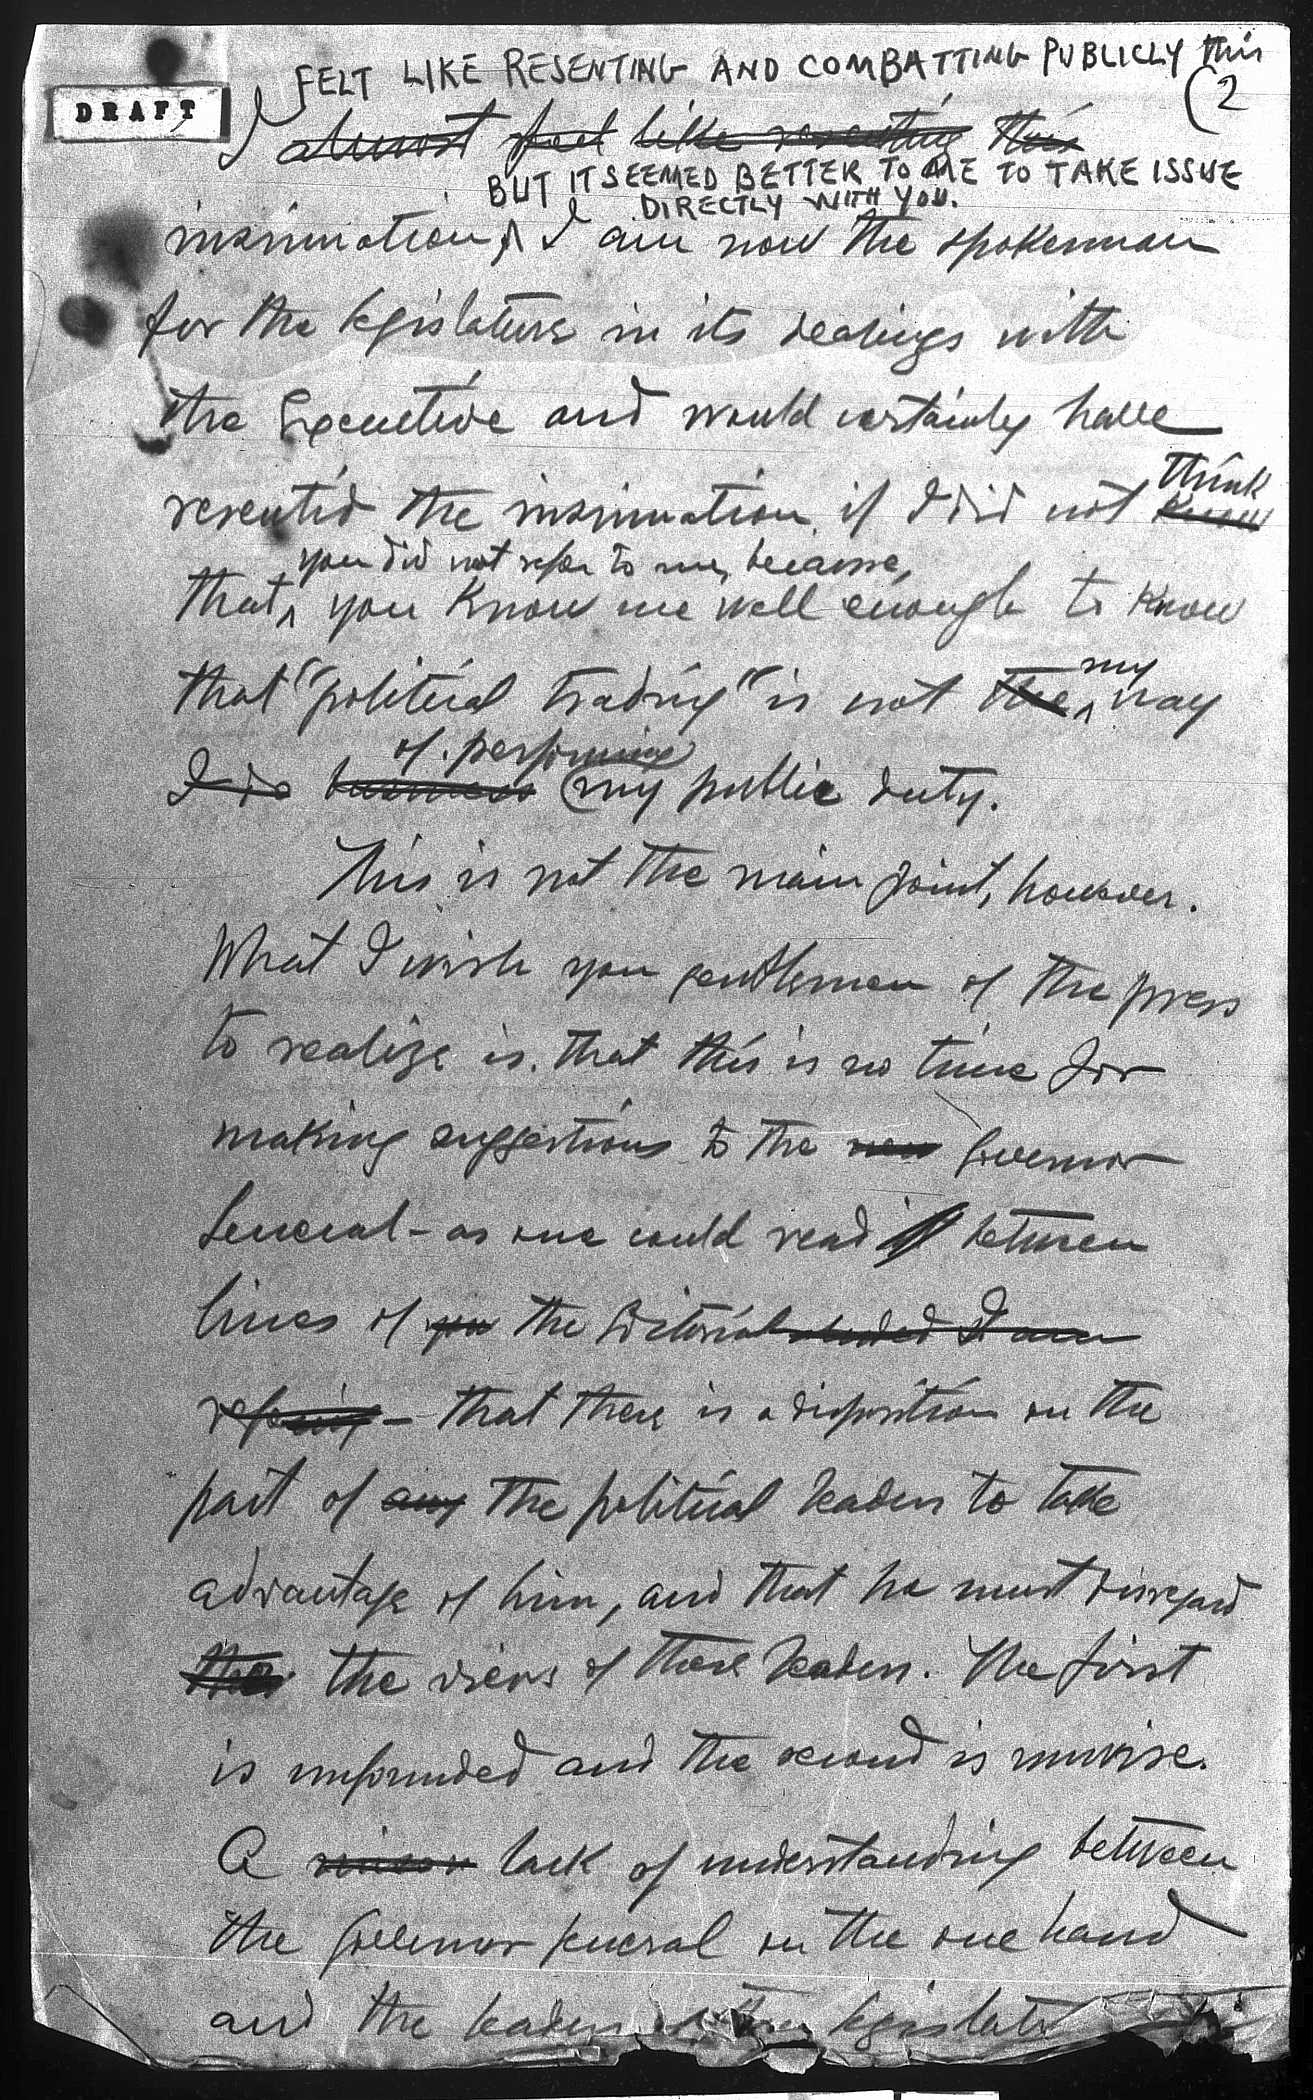 FELT LIKE RESENTING AND COMBATTING PUBLICLY this
(2
DRAFT
I almost feel like resenting this
BUT IT SEEMED BETTER TO ME TO TAKE ISSUE
DIRECTLY WITH YOU.
insinuation, I am now the spokesman
for the legislature in its dealings with
the Executive and would certainly have
resented the insinuation if I did not know
think
you did not refer to me, because,
that you know me well enough to know
that "political trading" is not the my way
of performing
I do business my public duty.
This is not the main point, however.
What I wish you gentlemen of the press
to realize is that this is no time for
making suggestions to the new Governor
General - as one could read between
lines of you the Editorial headed I am
refering - that there is a disposition on the
part of any the political leaders to take
advantage of him, and that he must disregard
the views of those leaders. The first
is unfounded and the second is unwise.
A lack of understanding between
the Governor General on the one hand
and the leaders